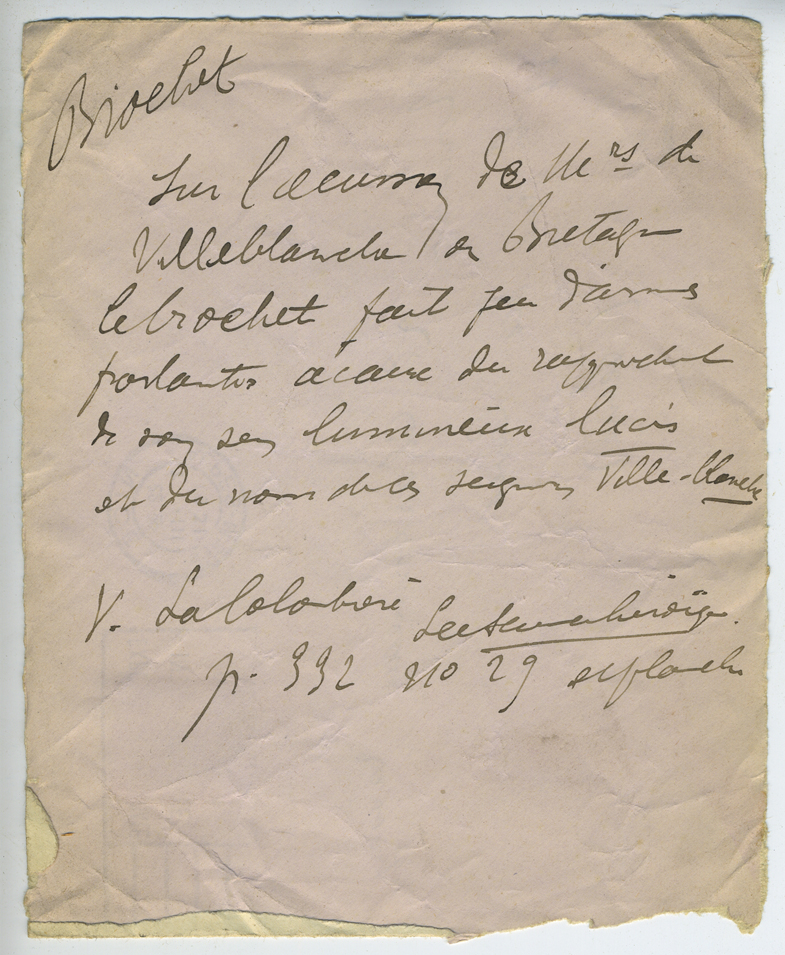 Brochet
Sur l'écusson de Mrs de
Villeblanche en Bretagne
le brochet fait jeu d'armes
parlantes à cause du
de son sens lumineux lucis
et du nom de ces seigneurs Ville-blanche
V. La Colombière
p. 332 no 29 et planche